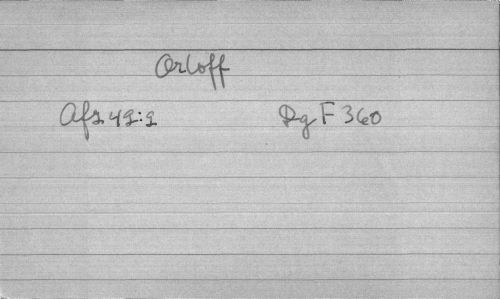 Orloff
Afs 42:2 Dg F 360